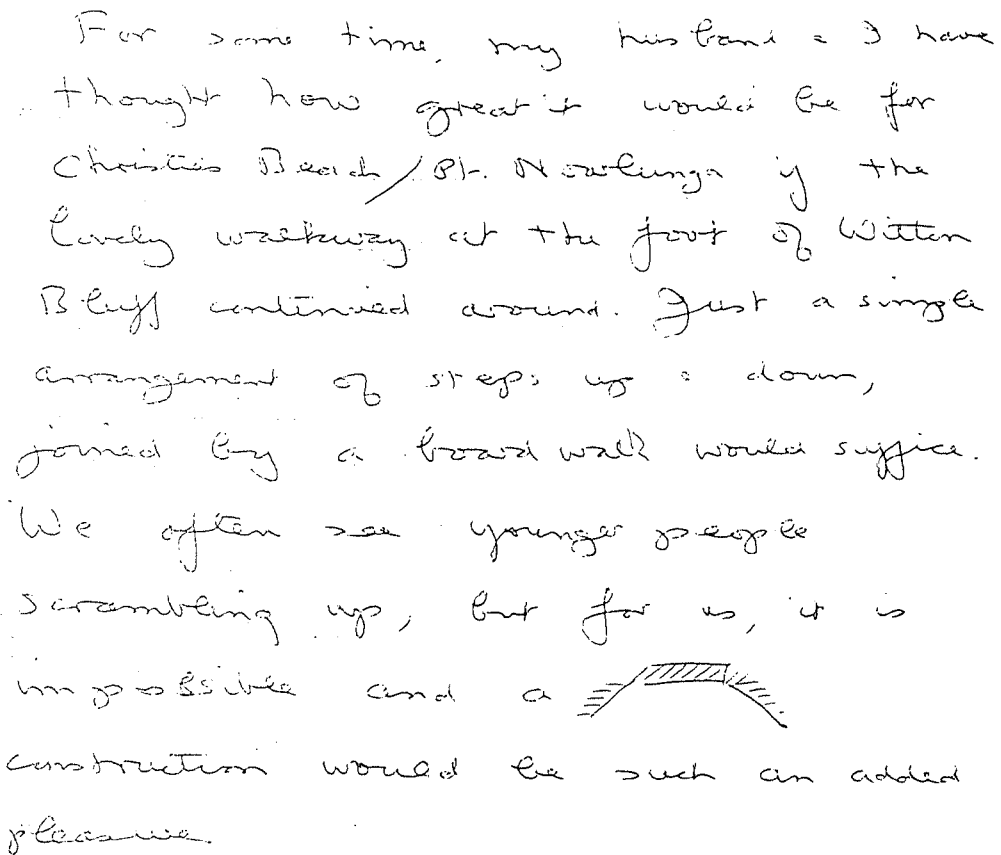 For some time, my husband & I have
thought how great it would be for
Christies Beach / Pt. Noarlunga if the
lovely walkway at the foot of Witton
Bluff continued around. Just a simple
arrangement of steps up & down,
joined by a board walk would suffice.
We often see younger people
scrambling up, but for us, it is
impossible and a
construction would be such an added
pleasure.